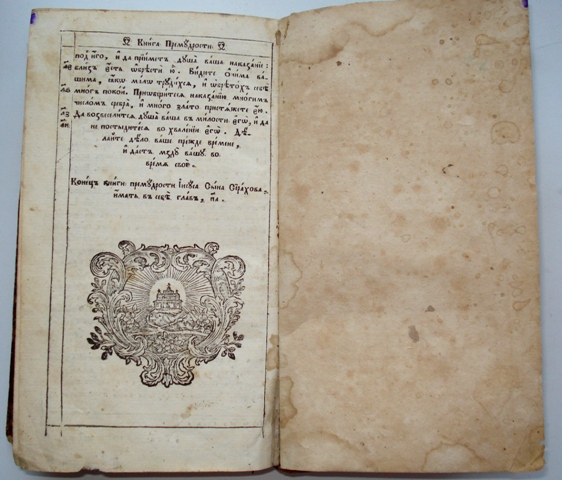 Ѿ Книга Премꙋдрости: Ѿ
под̾ и҆́го, и҆ да прїи́метъ дꙋша̀ ва́ша наказа́нїе:
бли́зъ є҆́сть ѡ҆брѣстѝ ю҆̀. Ви́дите Ѻ҆чи́ма ва-
шима, ꙗ҆́кѡ ма́лѡ трꙋди́хсѧ, и҆ ѡ҆брѣто́хъ себѣ̀
мно́гъ поко́й. Прїѡбщи́тесѧ наказа́нїю мно́гимъ
число́мъ сребра̀, и҆ мно́го зла́то притѧ́жете є҆́ю.
Да возвесели́тсѧ дꙋша̀ ва́ша в̾ ми́лости є҆гѡ̀, и҆ да
не постыди́тесѧ во хвале́нїи є҆гѡ̀. Дѣ́-
лайте дѣ́ло ва́ше пре́жде вре́мене,
и҆ да́стъ мздꙋ̀ ва́шꙋ во
вре́мѧ своѐ.
Коне́цъ кни́ги: премꙋ́дрости І҆исꙋ́са Сы́на Сїра́хова,
и҆́мать в̾ себѣ̀ гла́въ, н҃а.